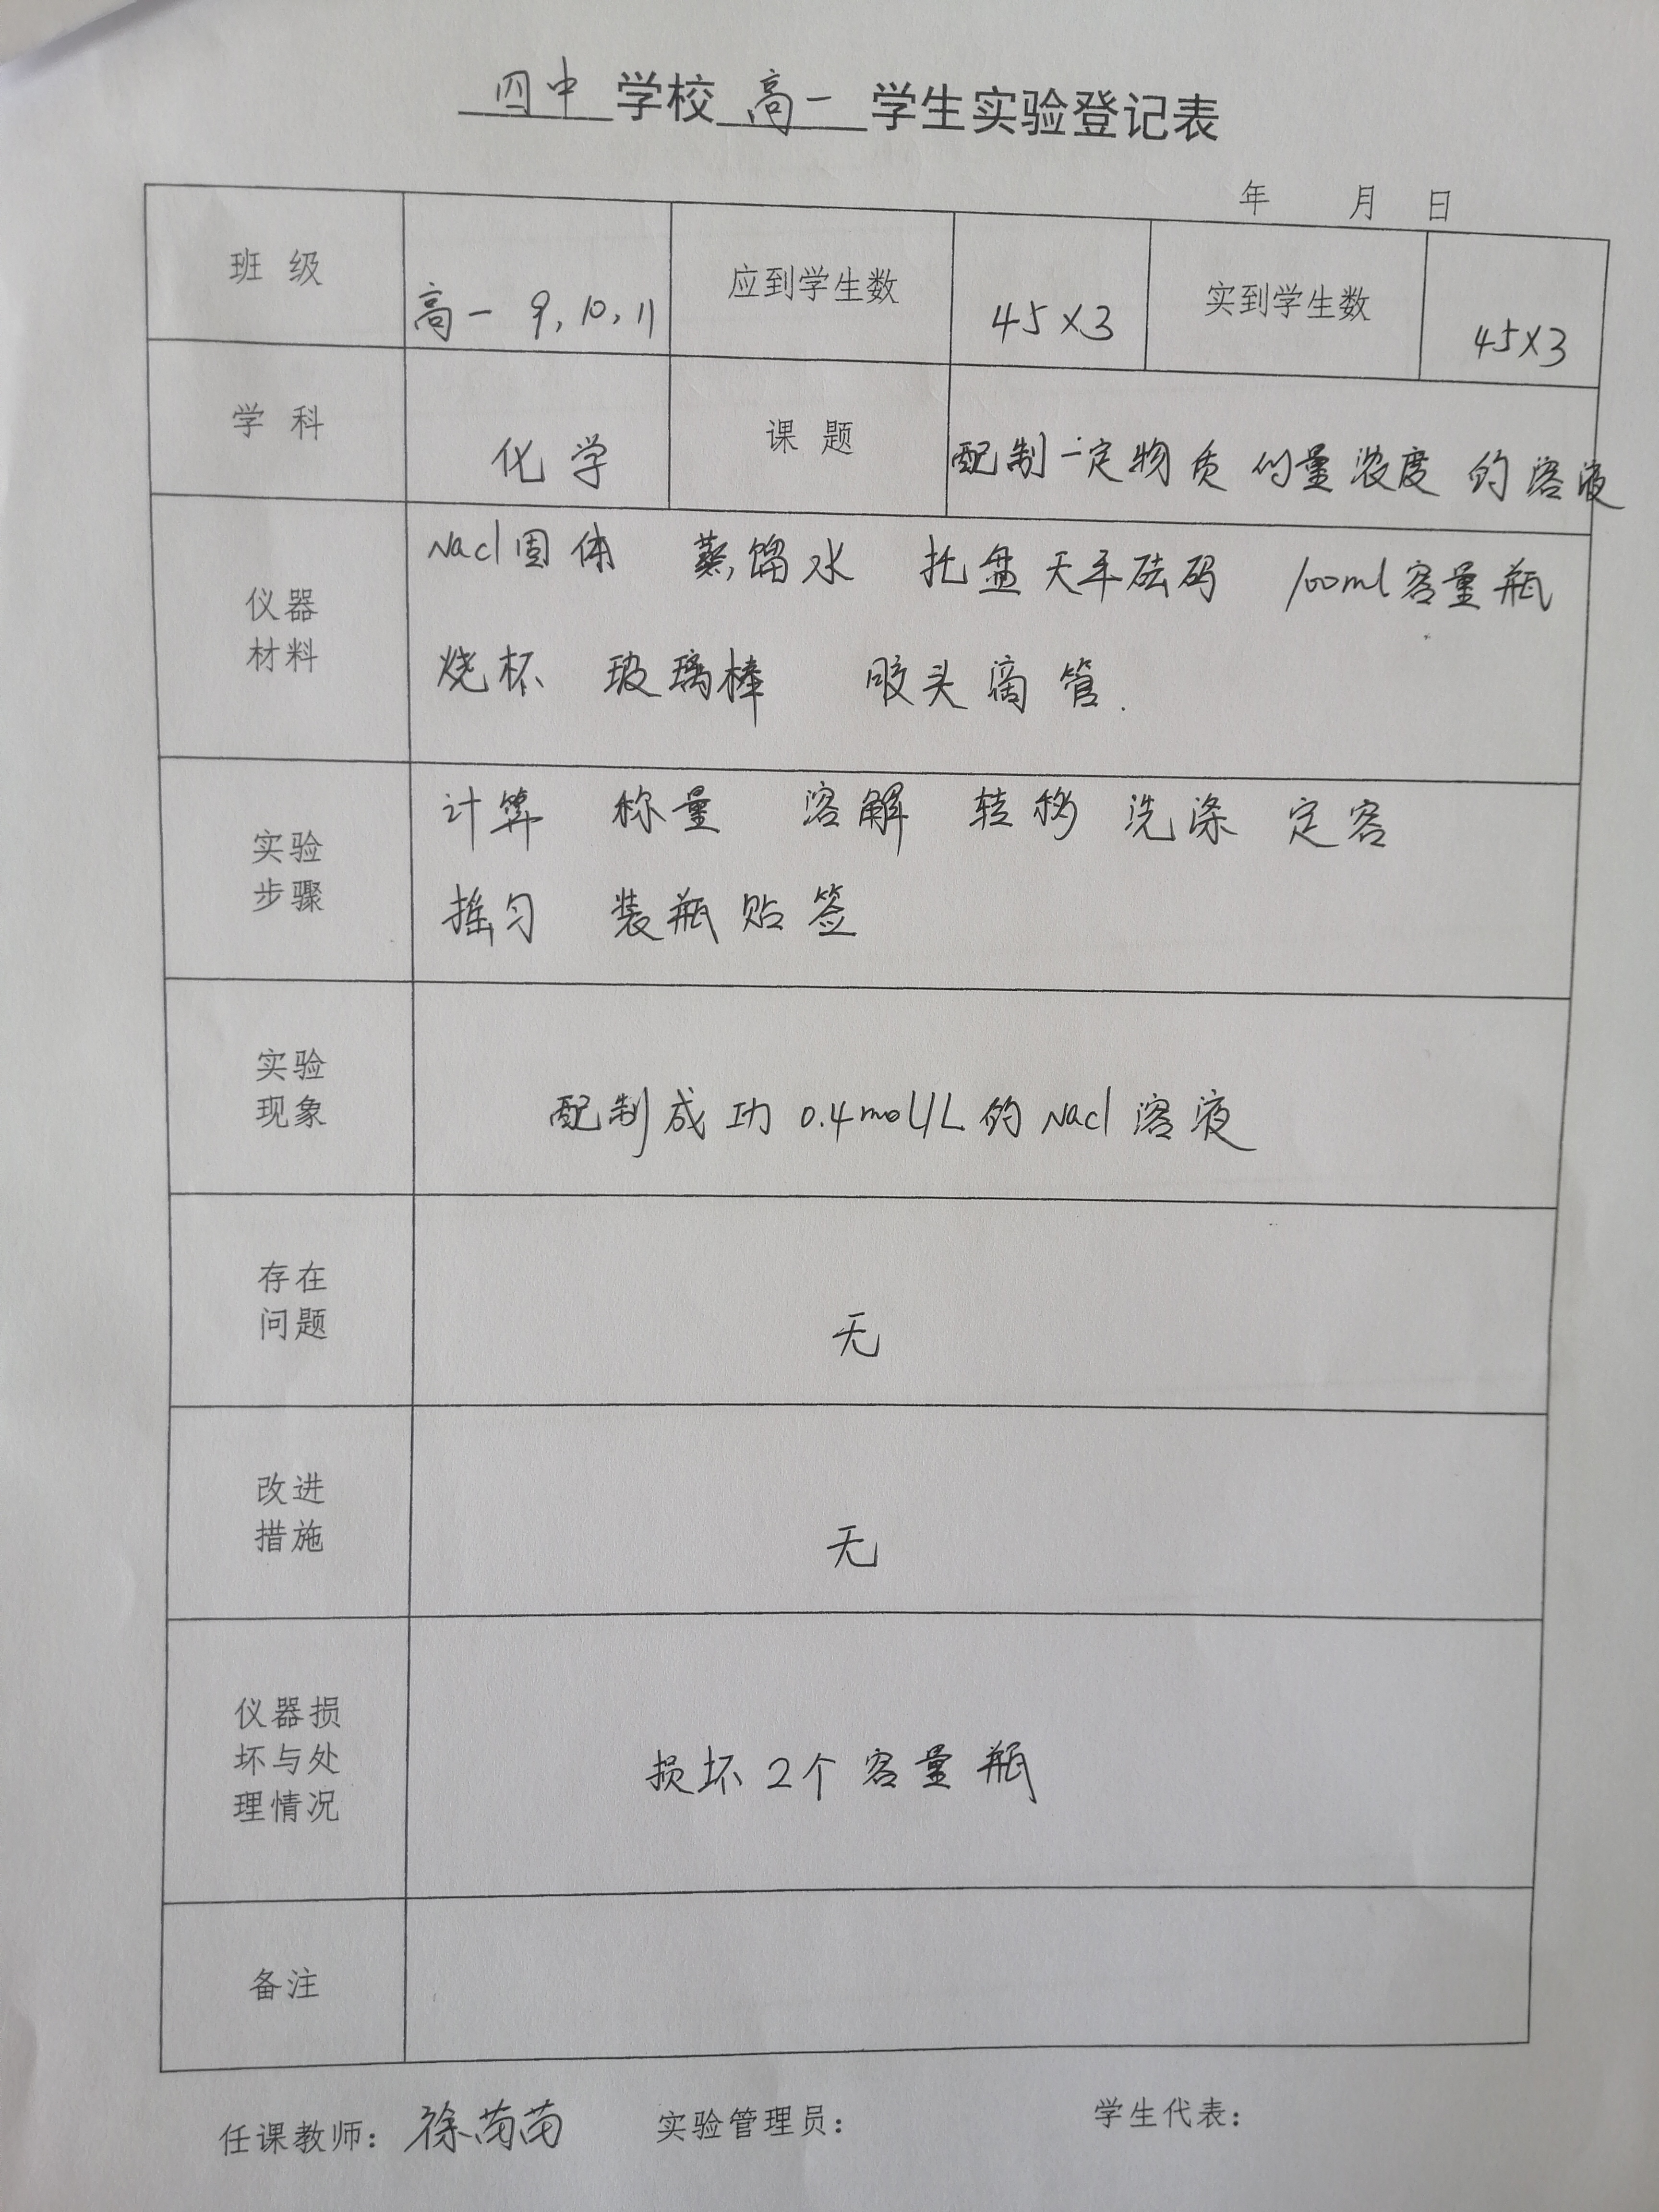 四中 学校 高一 学生实验登记表
年 月 日
班 级 高一 9,10,11 应到学生数 45×3 实到学生数 45×3
学 科 化学 课 题 配制一定物质的量浓度的溶液
仪器
材料
Nacl固体 蒸馏水 托盘天平砝码 100ml容量瓶
烧杯 玻璃棒 胶头滴管.
实验
步骤
计算 称量 溶解 转移 洗涤 定容
摇匀 装瓶贴签
实验
现象
配制成功 0.4mol/L的Nacl溶液
存在
问题
无
改进
措施
无
仪器损
坏与处
理情况
损坏2个容量瓶
备注
任课教师: 徐苗苗 实验管理员: 学生代表: